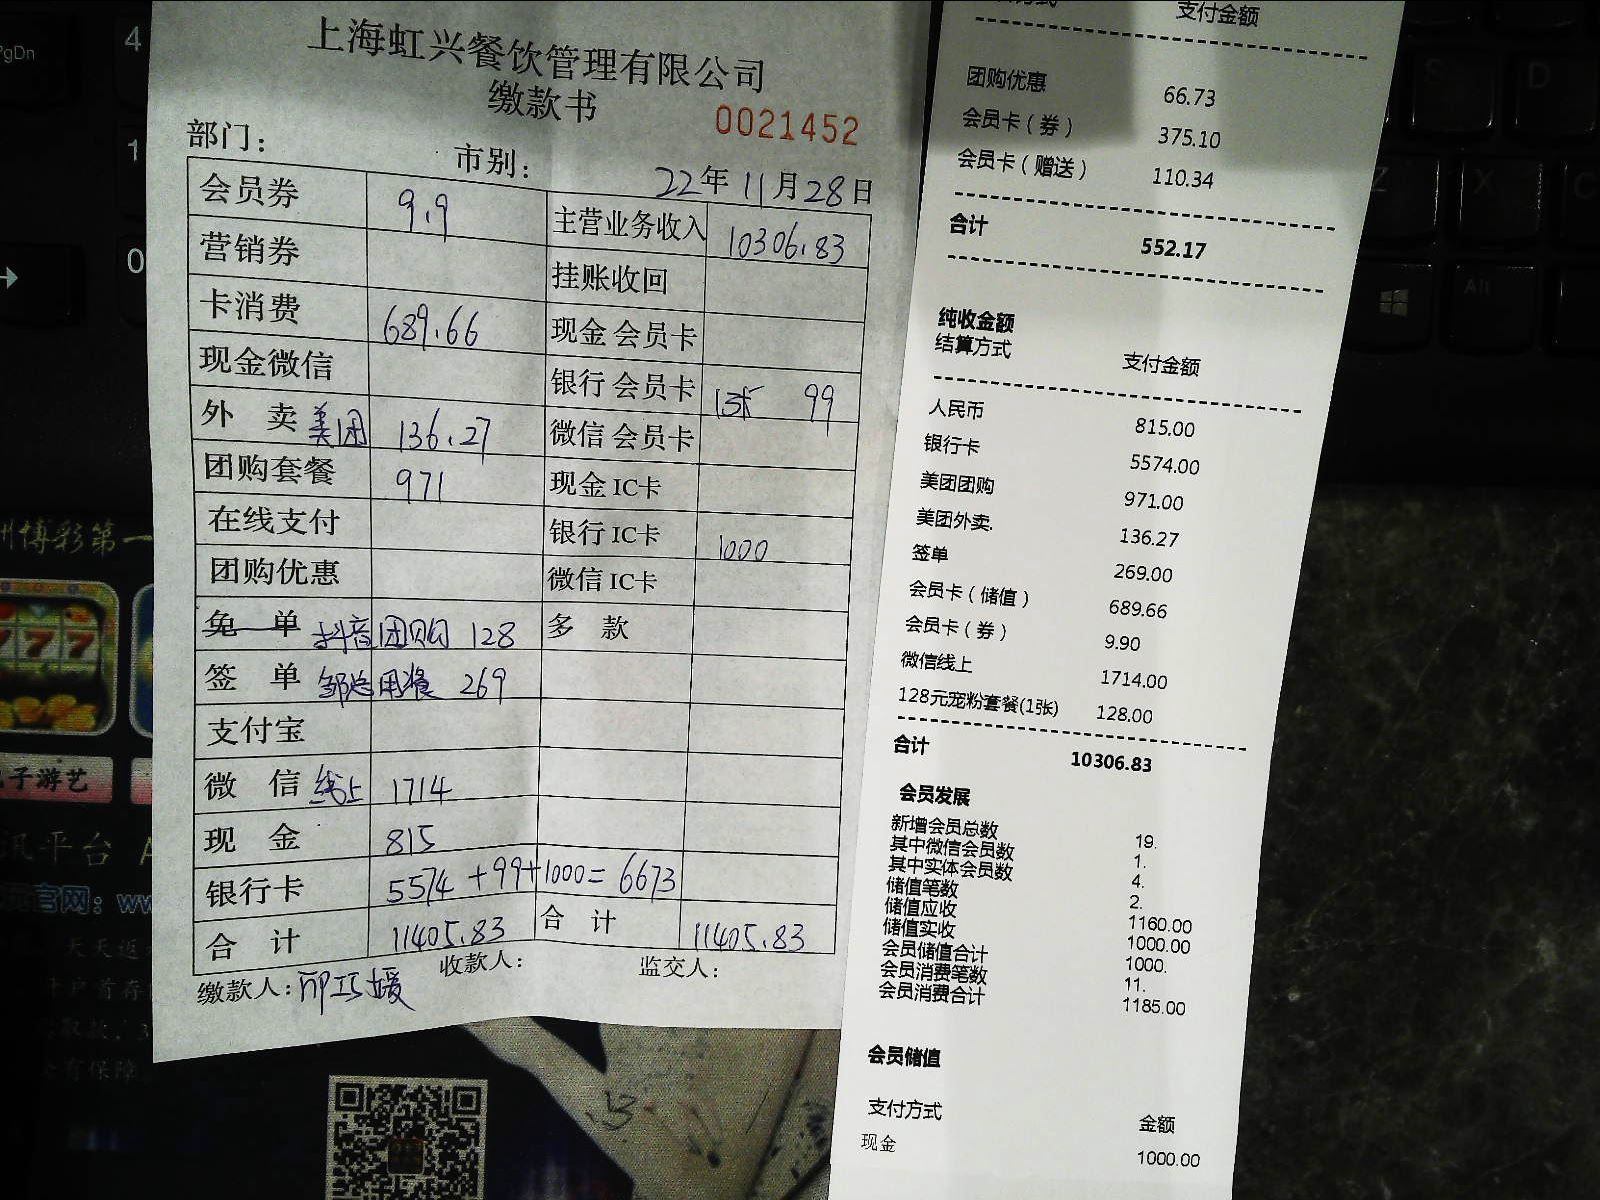 上海虹兴餐饮管理有限公司
缴款书
0021452
部门：
市别：
22年11月28日
会员券 9.9 主营业务收入 10306.83
营销券 挂账收回
卡消费 689.66 现金 会员卡
现金微信 银行 会员卡 1张 99
外 卖 美团 136.27 微信 会员卡
团购套餐 971 现金 IC卡
在线支付 银行 IC卡 1000
团购优惠 微信 IC卡
免 单 抖音团购 128 多 款
签 单 邹总用餐 269
支付宝
微 信 线上 1714
现 金 815
银行卡 5574+99+1000=6673
合 计 11405.83 合 计 11405.83
缴款人：
收款人：
监交人：
支付金额
团购优惠 66.73
会员卡（券） 375.10
会员卡（赠送） 110.34
合计 552.17
纯收金额
结算方式 支付金额
人民币 815.00
银行卡 5574.00
美团团购 971.00
美团外卖. 136.27
签单 269.00
会员卡（储值） 689.66
会员卡（券） 9.90
微信线上 1714.00
128元宠粉套餐(1张) 128.00
合计 10306.83
会员发展
新增会员总数 19.
其中微信会员数 1.
其中实体会员数 4.
储值笔数 2.
储值应收 1160.00
储值实收 1000.00
会员储值合计 1000.
会员消费笔数 11.
会员消费合计 1185.00
会员储值
支付方式 金额
现金 1000.00
PgDn
4
1
0
S
D
Z
X
C
Alt
州博彩第一
777
子游艺
讯平台
官网：ww
天天返
有保障